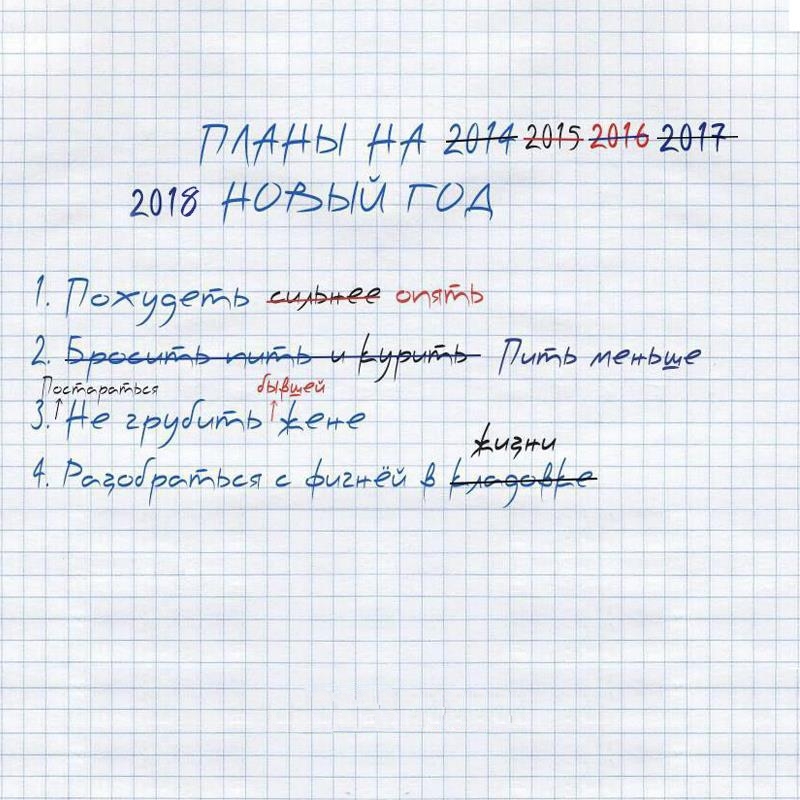 ПЛАНЫ НА 2014 2015 2016 2017
2018 НОВЫЙ ГОД
1. Похудеть сильнее опять
2. Бросить пить и курить Пить меньше
Постараться бывшей
3. Не грубить жене
жизни
4. Разобраться с фигнёй в кладовке